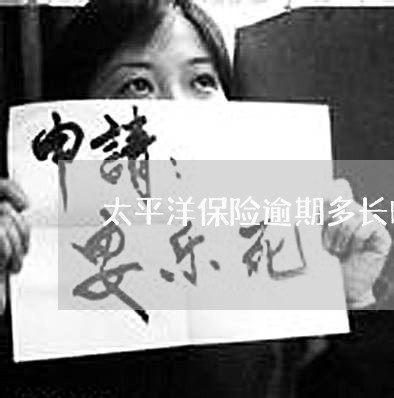 申請：
太平洋保险逾期多长
安乐死